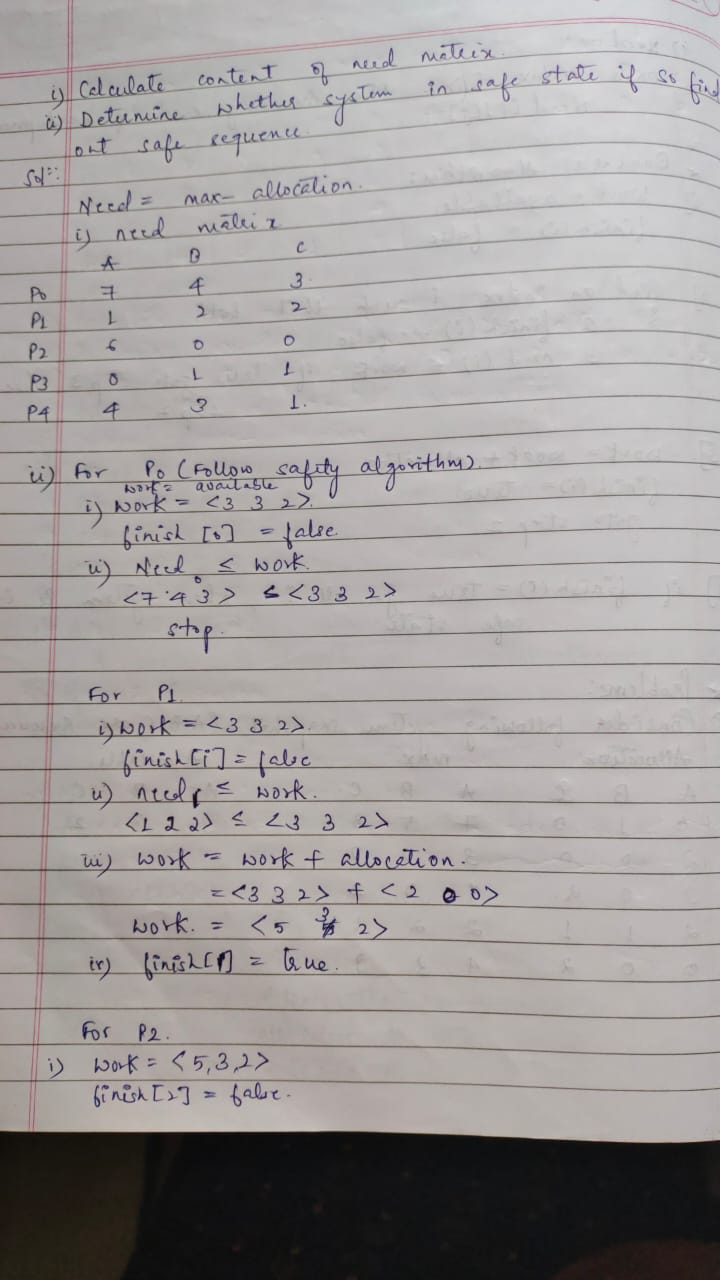 i) Calculate content of need matrix.
ii) Determine whether system in safe state if so find
out safe sequence.
Sol:-
Need = max - allocation.
i) need matrix
A B C
P0 7 4 3
P1 1 2 2
P2 6 0 0
P3 0 1 1
P4 4 3 1.
ii) For P0 (Follow safity algorithm).
work = available
i) Work = <3 3 2>.
finish [0] = false.
ii) Need0 ≤ work.
<7 4 3> ≤ <3 3 2>
stop.
For P1.
i) work = <3 3 2>.
finish [i] = false
ii) need1 ≤ work.
<1 2 2> ≤ <3 3 2>
iii) work = work + allocation.
= <3 3 2> + <2 0 0>
work. = <5 3 2>
iv) finish [1] = true.
For P2.
i) work = <5,3,2>
finish [2] = false.